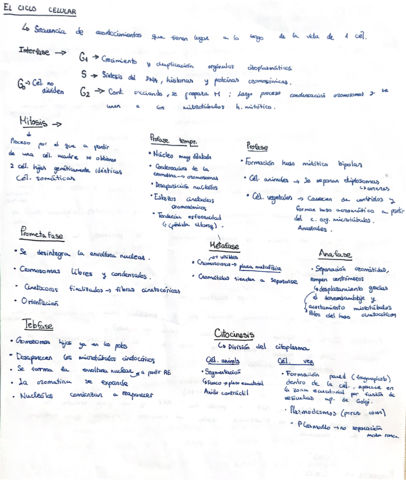 EL CICLO CELULAR
↳ Secuencia de acontecimientos que tienen lugar a lo largo de la vida de 1 cel.
Interfase → G₁ → Crecimiento y duplicación orgánulos citoplasmáticos
S → Síntesis del DNA, histonas y proteínas cromosómicas.
G₀ → Cél. no dividen
G₂ → Cont. creciendo, se prepara M; luego proceso condensación cromosomas y se
unen a los microtúbulos h. mitótico.
Mitosis →
Proceso por el que a partir
de una cél. madre se obtienen
2 cél. hijas genéticamente idénticas
Cél. somáticas
Profase temp.
• Núcleo muy dilatado
• Condensación de la
cromatina → cromosomas
• Desaparición nucléolos
• Estrías cinetocoros
cromosómicos
• Tendencia esfericidad
Profase
• Formación huso mitótico bipolar
• Cél. animales → Se separan diplosomas
• Cél. vegetales → Carecen de centríolos y
forman huso acromático a partir
del c. org. microtúbulos.
Anastrales.
Prometafase
• Se desintegra la envoltura nuclear.
• Cromosomas libres y condensados.
• Cinetocoros finalizados → fibras cinetocóricas
• Orientación
Metafase
• Cromosomas → placa metafásica
• Cromátidas tienden a separarse
Anafase
• Separación cromátidas,
rompen centrómeros
↳ desplazamiento gracias
al
acortamiento microtúbulos
fibras del huso cinetocórico
Telofase
• Cromosomas hijos ya en los polos
• Desaparecen los microtúbulos cinetocóricos
• Se forma la envoltura nuclear a partir RE
• La cromatina se expande
• Nucléolos comienzan a reaparecer
Citocinesis
↳ División del citoplasma
Cél. animal
• Segmentación
↳ surco o placa ecuatorial
Anillo contráctil
Cél. veg.
• Formación pared (fragmoplasto)
dentro de la cél., aparece en
la zona ecuatorial por fusión de
vesículas ap. de Golgi.
• Plasmodesmos (poros com)
• Plasmodio → no separación